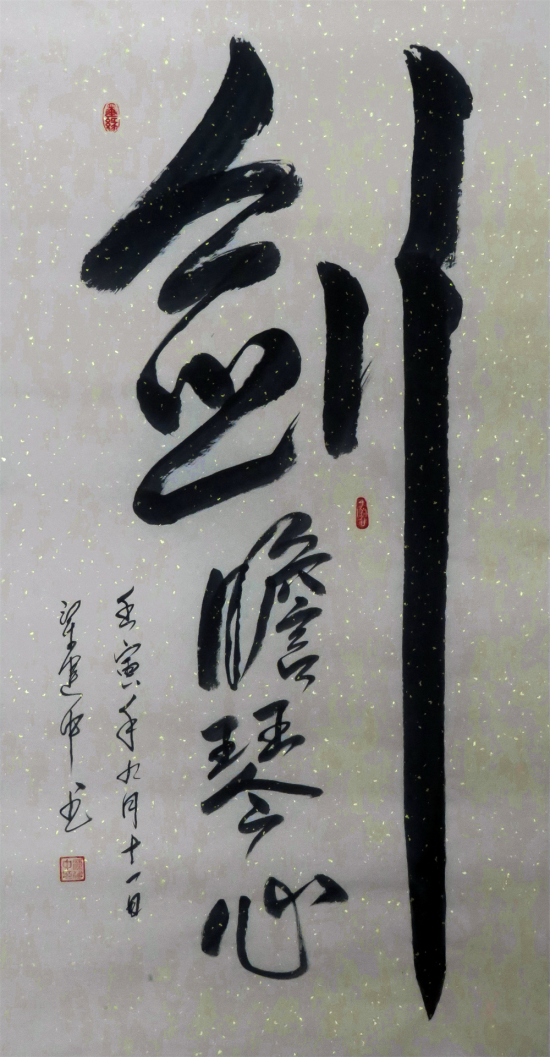 剑胆琴心
壬寅年九月十一日
梁建中书